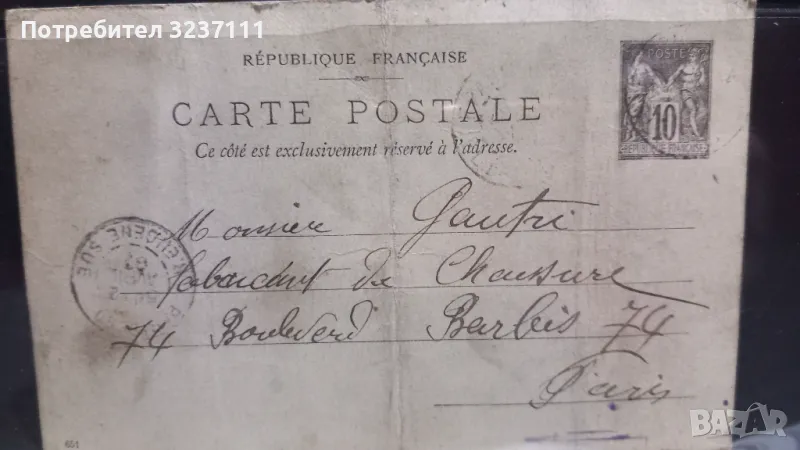 Потребител 3237111
RÉPUBLIQUE FRANÇAISE
POSTE
CARTE POSTALE
10
REPUBLIQUE FRANÇAISE
Ce côté est exclusivement réservé à l'adresse.
Monsieur Gautri
EUGENE SUE
de Chaussure
74 Boulevard Barbès 74
Paris
651
BAZAR
bg